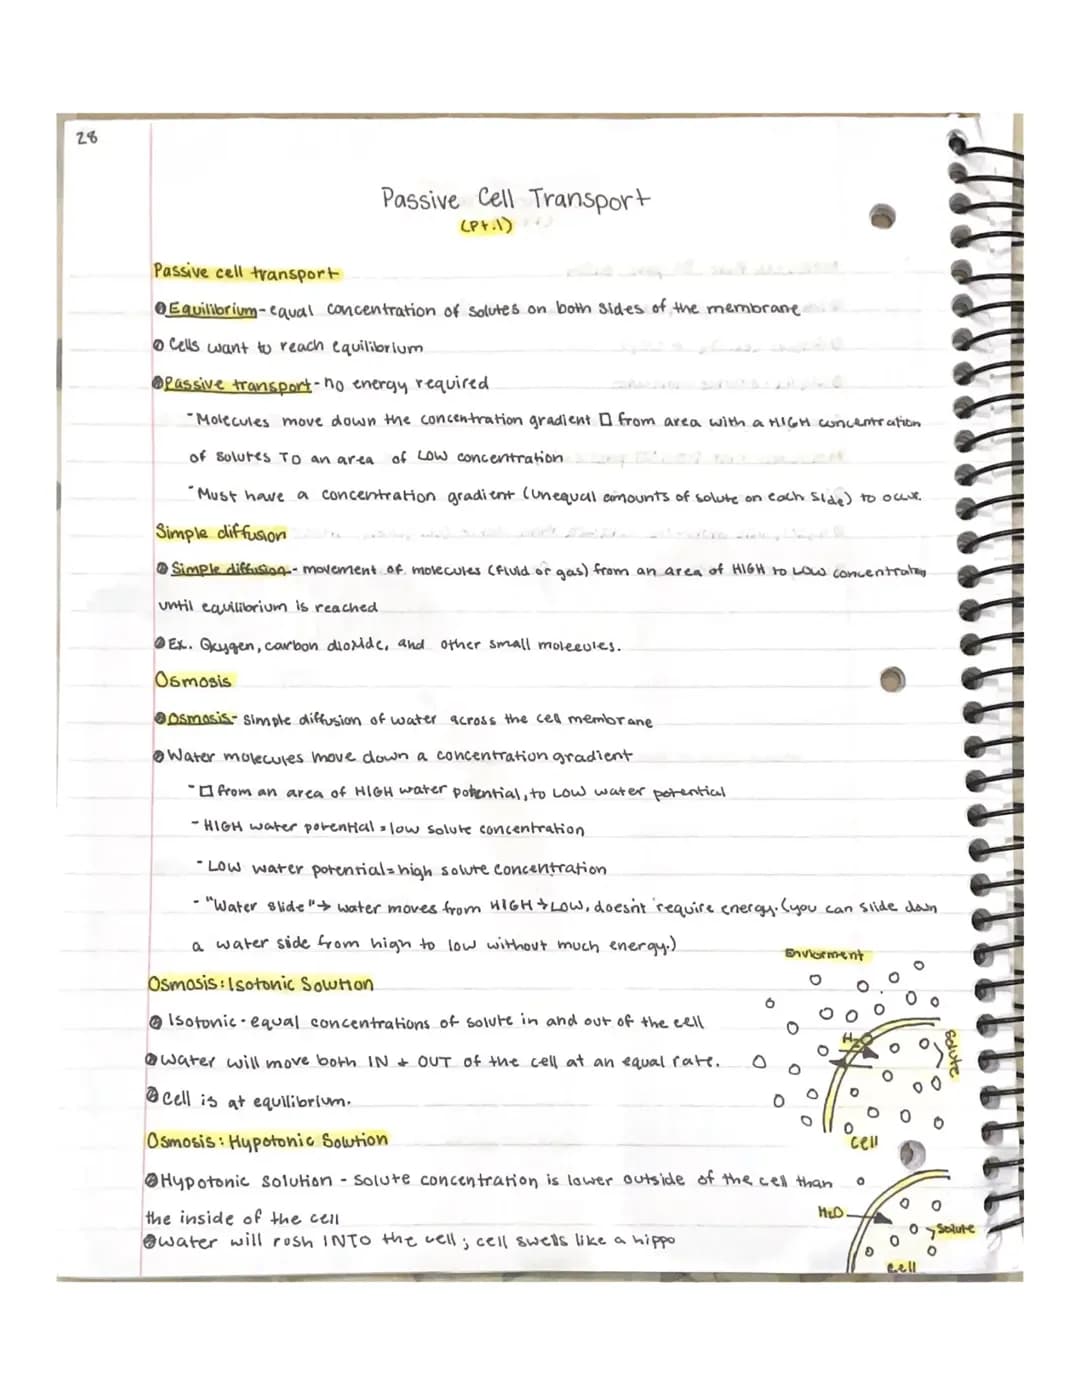 28
Passive Cell Transport
(Pt.1)
Passive cell transport
Equilibrium- equal concentration of solutes on both sides of the membrane
Cells want to reach equilibrium
Passive transport- no energy required
-Molecules move down the concentration gradient □ from area with a HIGH concentration
of solutes TO an area of LOW concentration
-Must have a concentration gradient (unequal amounts of solute on each side) to occur.
Simple diffusion
Simple diffusion- movement of molecules (fluid or gas) from an area of HIGH to LOW concentration
until equilibrium is reached
Ex. Oxygen, carbon dioxide, and other small molecules.
Osmosis
Osmosis- simple diffusion of water across the cell membrane
Water molecules move down a concentration gradient
-□ from an area of HIGH water potential, to LOW water potential
- HIGH water potential = low solute concentration
- Low water potential = high solute concentration
- "Water slide" → water moves from HIGH → LOW, doesn't require energy. (you can slide down
a water side from high to low without much energy.)
Enviorment
Osmosis: Isotonic Solution
Isotonic - equal concentrations of solute in and out of the cell
H2O
Solute
water will move both IN + OUT of the cell at an equal rate.
cell is at equilibrium.
cell
Osmosis: Hypotonic Solution
Hypotonic solution - solute concentration is lower outside of the cell than
the inside of the cell
H2O
Solute
water will rush INTO the cell; cell swells like a hippo
cell